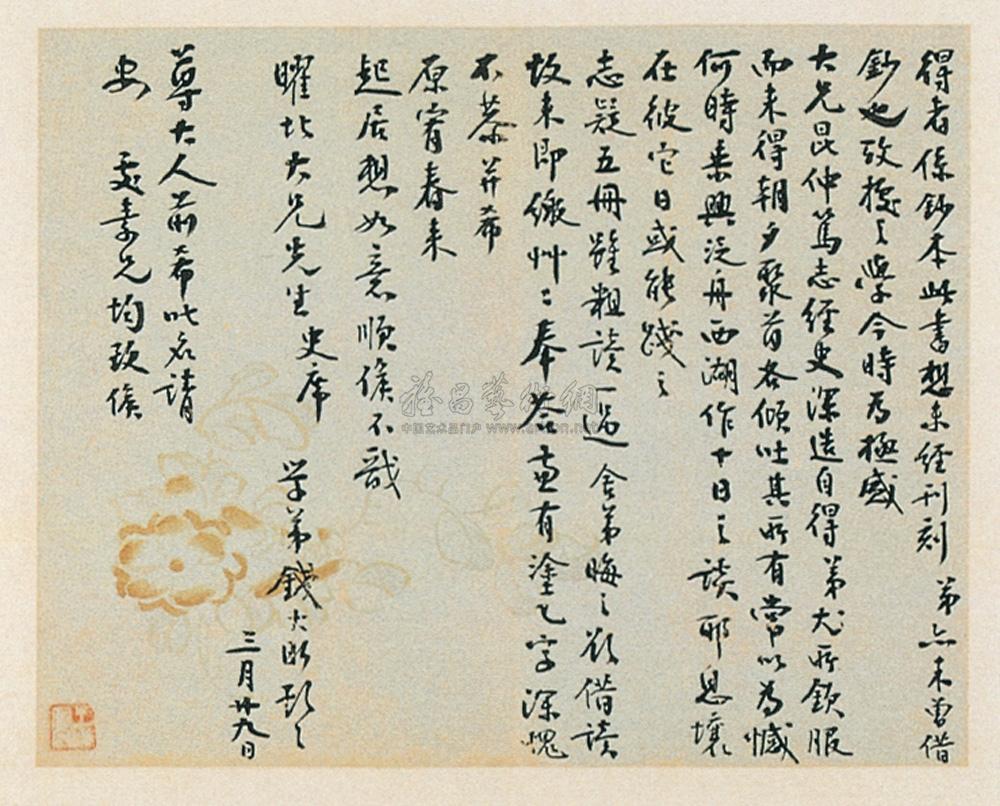 得者係鈔本此書想未經刊刻弟亦未曾借
鈔也攷據之學今時為極盛
大兄昆仲篤志經史深造自得弟尤所欽服
而未得朝夕聚首各傾吐其所有常以為憾
何時乘興泛舟西湖作十日之談耶息壤
在彼它日或能踐之
志疑五冊雖粗讀一過舍弟晦之欲借讀
故未即繳艸艸奉答畫有塗乙字深愧
不恭并希
原宥春來
起居想如意順候不戩
曜北大兄先生史席
學弟錢大昕頓首
三月廿九日
尊大人前希叱名請
安 處素兄均致候
雅昌藝術網
中国艺术品门户 www.artron.net